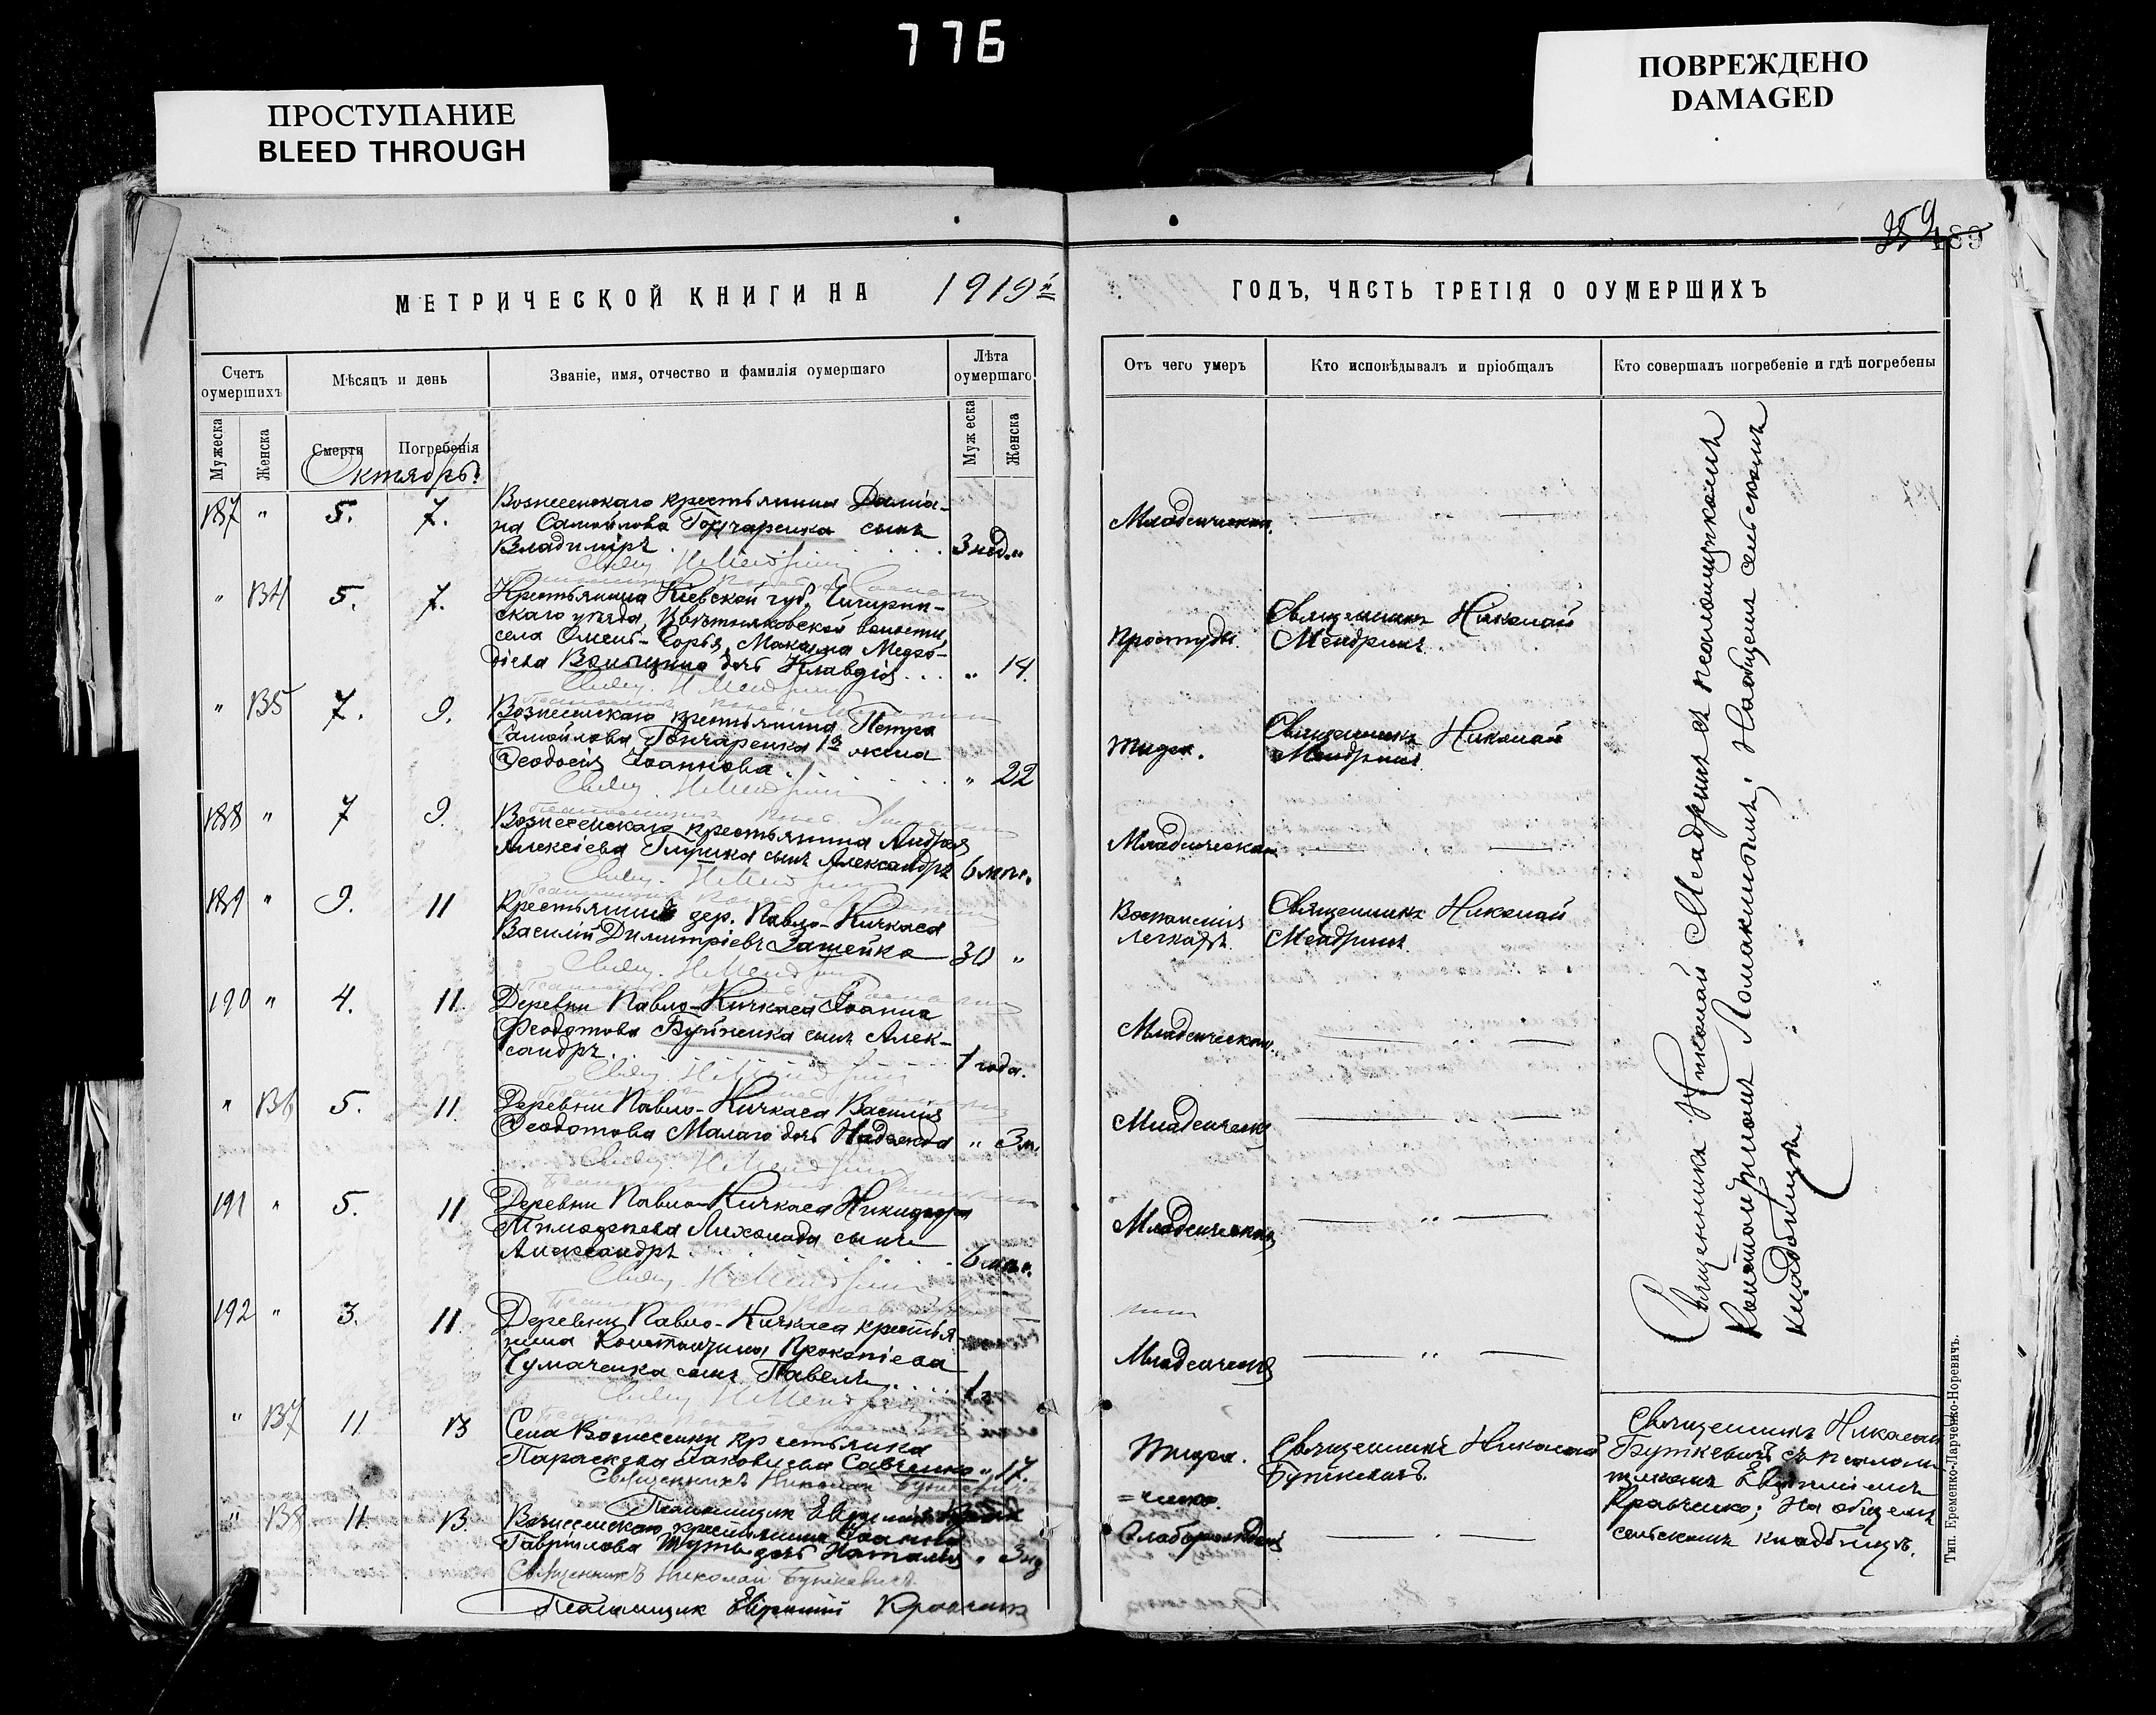 776
ПРОСТУПАНИЕ
BLEED THROUGH
ПОВРЕЖДЕНО
DAMAGED
359
489
МЕТРИЧЕСКОЙ КНИГИ НА 1919й
ГОДЪ, ЧАСТЬ ТРЕТІЯ О ОУМЕРШИХЪ
Счетъ оумершихъ
Мѣсяцъ и день
Званіе, имя, отчество и фамилія оумершаго
Лѣта оумершаго
Отъ чего умеръ
Кто исповѣдывалъ и пріобщалъ
Кто совершалъ погребеніе и гдѣ погребены
Мужеска
Женска
Смерти
Погребенія
Мужеска
Женска
Октябрь.
187 " 5. 7.
Вознесенскаго крестьянина Даміа-
на Самойлова Гончаренка сынъ
Владиміръ 3 нед. "
Младенческой
Свящ. Н Мендринъ
" 134 5. 7.
Крестьянина Кіевской губ. Чигирин-
скаго уѣзда, волости,
села Максима Мефо-
діева дочь Клавдія " 14.
Простуды.
Священникъ Николай
Мендринъ
Свящ. Н Мендринъ
" 135 7. 9.
Вознесенскаго крестьянина Петра
Самойлова Гончаренка 1я жена
Феодосія Іоаннова " 22
Тифа.
Священникъ Николай
Мендринъ
Свящ. Н Мендринъ
188 " 7 9.
Вознесенскаго крестьянина Андрея
Алексіева Глушка сынъ Александръ 6 мѣс.
Младенческой
Свящ. Н Мендринъ
189 " 9. 11
Крестьянинъ дер. Павло-Кичкаса
Василій Димитріевъ Зашейко 30 "
Воспаленія
легкихъ
Священникъ Николай
Мендринъ
Свящ. Н Мендринъ
190 " 4. 11.
Деревни Павло-Кичкаса Іоанна
Феодотова Бутенка сынъ Алек-
сандръ 1 года.
Младенческой
Свящ. Н Мендринъ
" 136 5. 11
Деревни Павло-Кичкаса Василія
Феодотова Малаго дочь Надежда " 3 м.
Младенческ
Свящ. Н Мендринъ
191 " 5. 11
Деревни Павло-Кичкаса Никифора
Тимофеева Лихолада сынъ
Александръ 6 мѣс.
Младенческой
Свящ. Н Мендринъ
192 " 3. 11.
Деревни Павло-Кичкаса крестья-
нина Константина Прокопіева
Чумаченка сынъ Павелъ 1 г.
Младенческ
Свящ. Н Мендринъ
" 137 11 13
Села Вознесенки крестьянка
Параскева Іаковлева Савченко " 17.
Тифа.
Священникъ Николай
Буткевичъ
Священникъ Николай Буткевичъ
Псаломщик Евфимій
" 138 11. 13.
Вознесенскаго крестьянина Іоанна
Гаврилова дочь Наталія " 3 нд
Слаборожден
Священникъ Николай Буткевичъ
Псаломщик Евфимій Кравченко
Священникъ Николай Мендринъ съ псаломщикомъ
Ломакинымъ. На общемъ сельскомъ
кладбищѣ.
Священникъ Николай
Буткевичъ съ псалом-
щикомъ Евфиміемъ
Кравченко; На общемъ
сельскомъ кладбищѣ.
Тип. Еременко-Ларченко-Норевичъ.